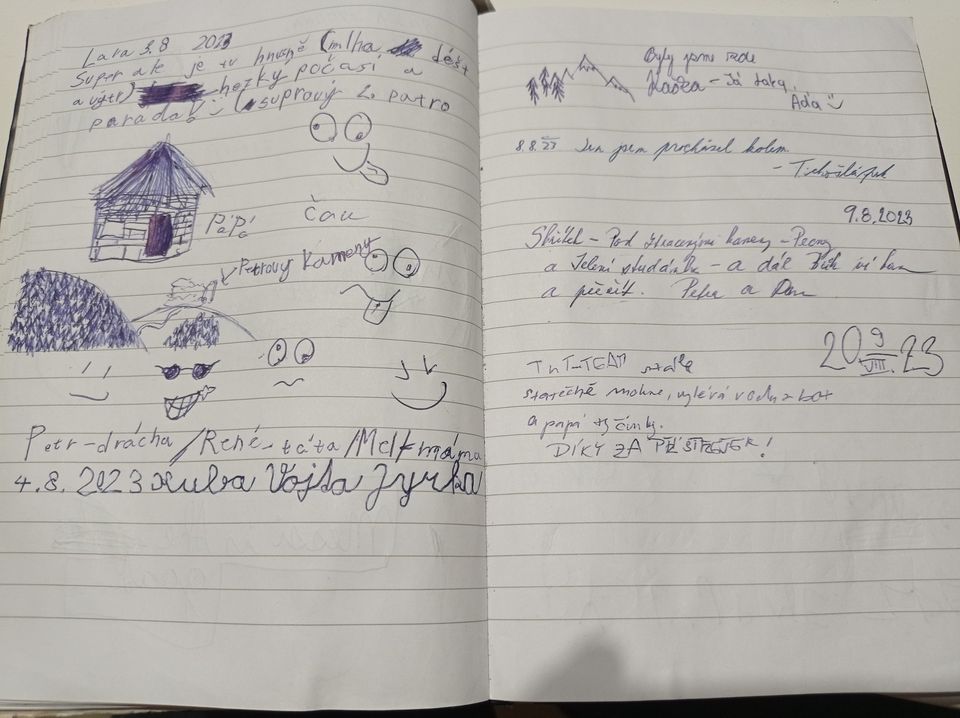 Lara 3.8 2023
Super ale je tu hnusně (mlha déšt
a výtr) hezky počasí a
parada! suprovy 2. patro
PáPá
Čau
Petrovy Kameny
Petr-drácha / René-táta / máma
4.8. 2023 Kuba Vojta Jyrka
Byly jsme zde
Kačka - Já taky.
Áďa
8.8.23 Jen jsem procházel kolem
- Tichošlápek
9.8.2023
- Pod Ztracenými kameny - Pecny
a Jelení studánka - a dál Bůh ví kam
a péčit. Petra a Dan
20 9 VIII. 23
TNT-TEAM stále
statečně mokne, vylévá vodu z bot
a papá tyčinky.
DÍKY ZA PŘÍSTŘEŠEK!